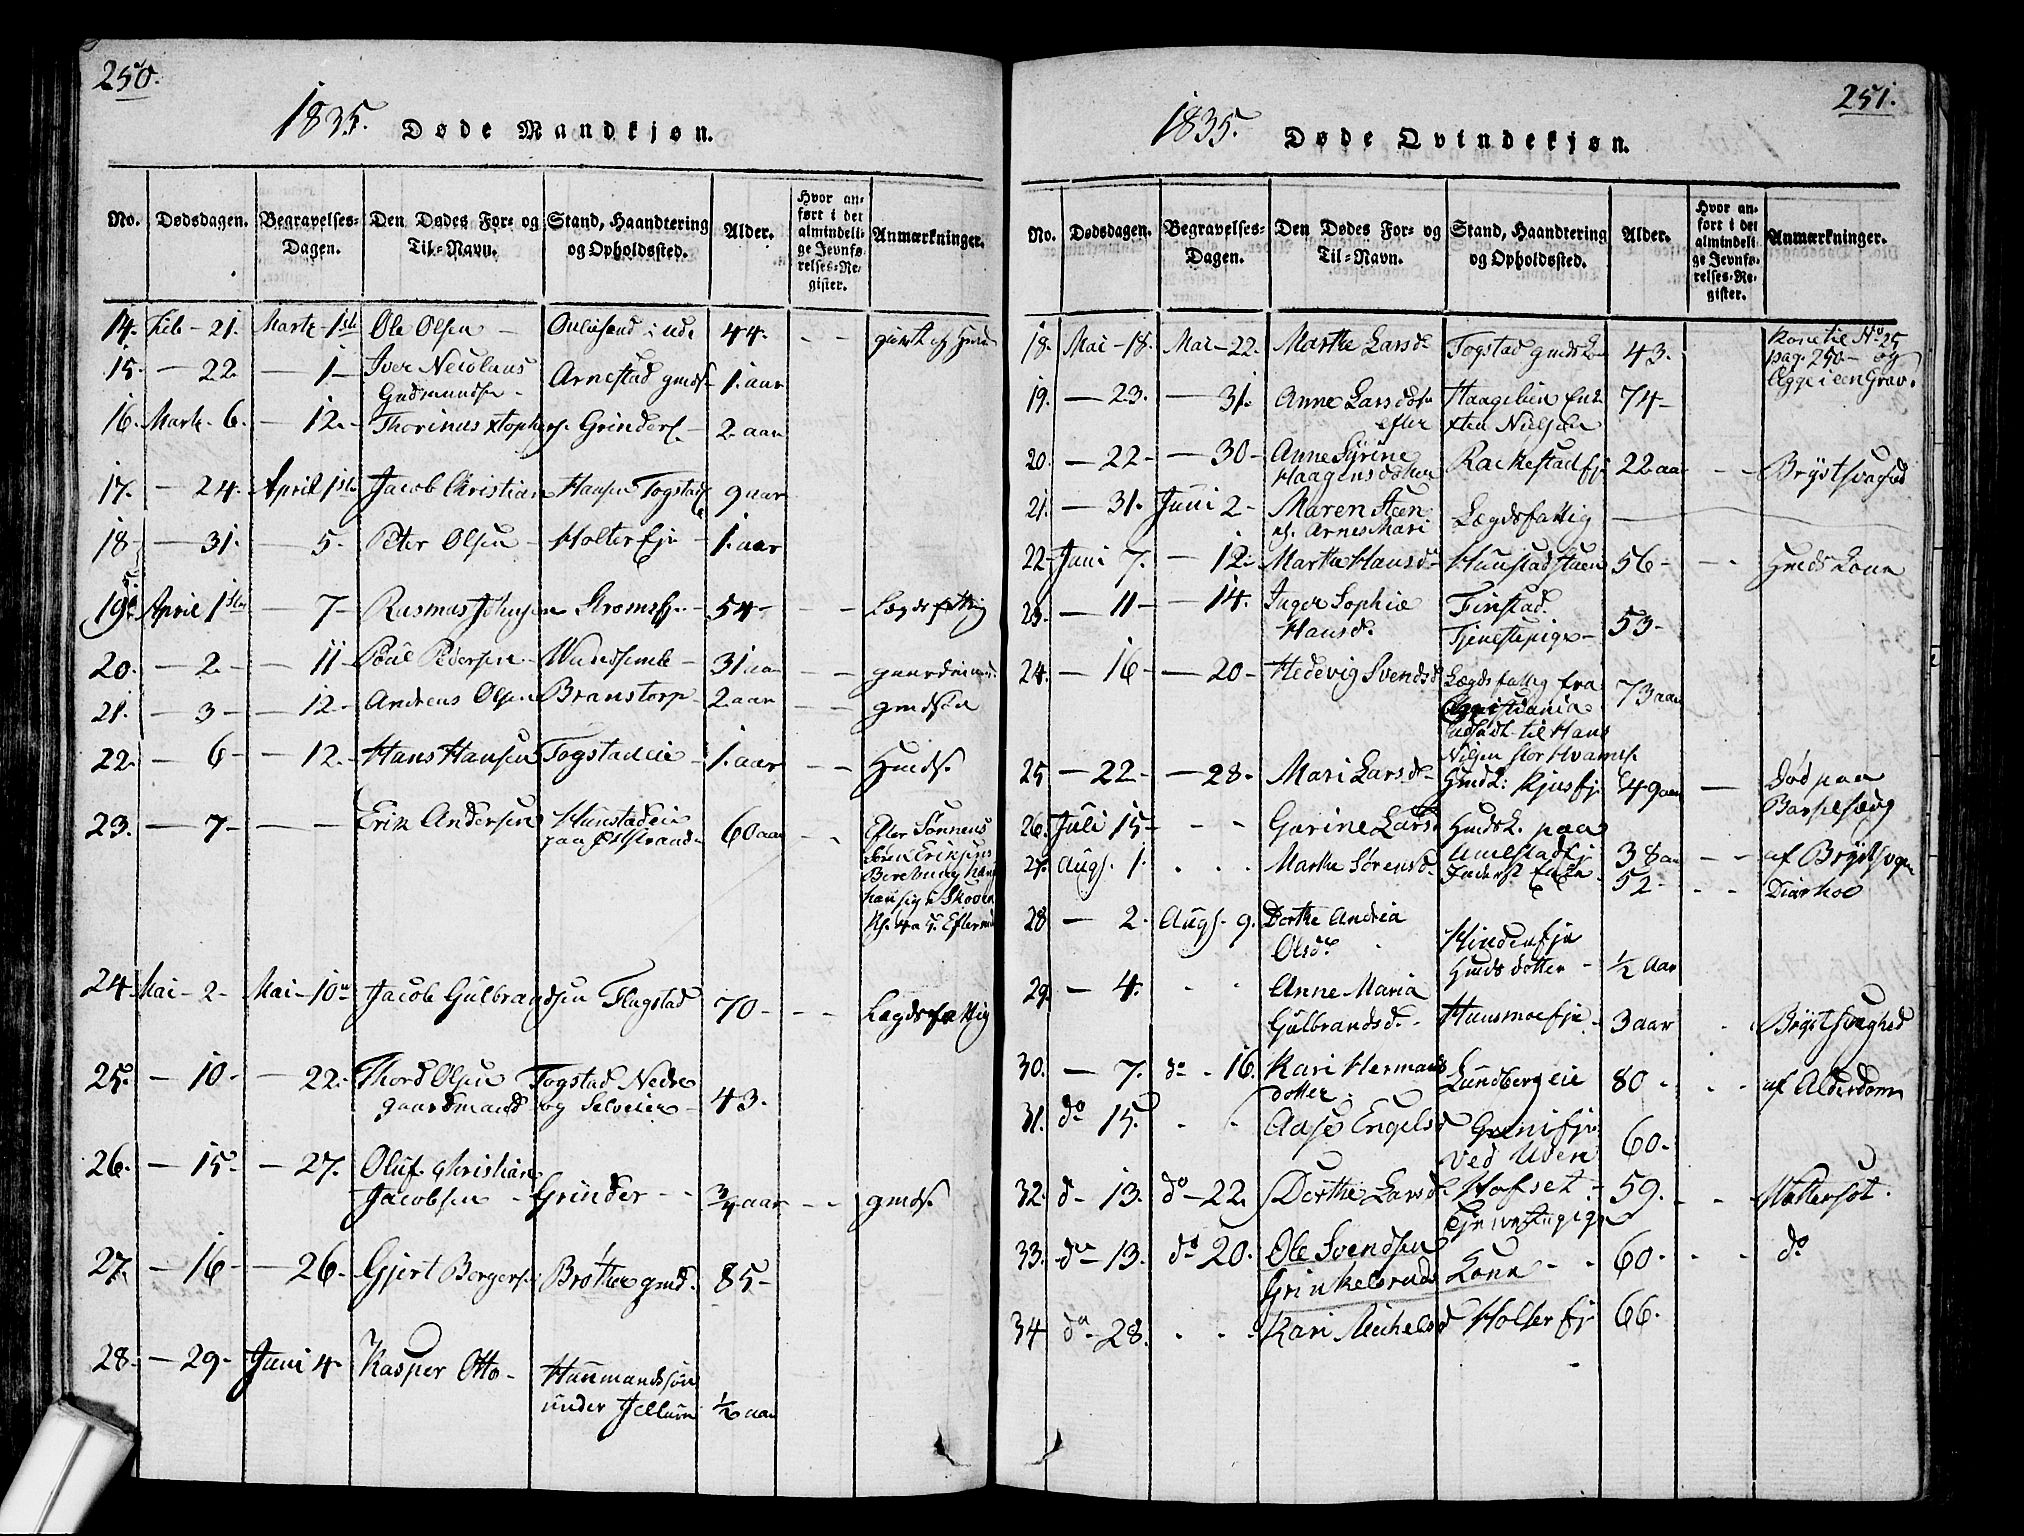 250.
1835. Døde Mandkjøn.
No. Dødsdagen. Begravelses-Dagen. Den Dødes For- og Til-Navn. Stand, Haandtering og Opholdssted. Alder. Hvor anført i det almindelige Jevnførelses-Register. Anmærkninger.
14. Feb - 21. Marts - 1ste Ole Olsen - 44.
15. - 22. - 1 - Iver Nicolaus Gudmundsen - Arnestad gmds - 1. aar
16. Marts - 6. - 12. - Thorinus xtophers. Grinders. 2 aar
17. - 24. April 1ste Jacob Christian Hansen Togstad 9 aar
18 - 31. - 5. Peter Olsen - Holter Eje - 1. aar
19. April 1ste - 7 - Rasmus Johnsen 54 - - - Lægdsfattig
20. - 2 - - 11 Poul Pedersen - 31 aa - -
21. - 3 - - 12 - Andreas Olsen Branstorp - 2 aar - -
22. - 6 - 12. - Hans Hansen Togstadeie 1. aar - - Hmds.
23. - 7 - - - Erik Andersen Hunstadeie 60 aar - Efter Sønnens Søren Eriksens
24. Mai - 2 - Mai - 10 Jacob Gulbrandsen Flagstad 70 - - - Lægdsfattig
25. - 10 - - 22. - Thord Olsen gaardmand Togstad Nedre og Selveier - 43.
26. - 15 - - 27. Oluf Christian Jacobsen - Grinder - - 3/4 aar - - gmds.
27. - 16 - 26 - Gjert Borgers. Brøther gmd. 85 -
28. - 29 - Juni 4 - Kasper Otto - Huusmandssøn under Jellum ½ aar
251.
1835. Døde Qvindekjøn.
No. Dødsdagen. Begravelses-Dagen. Den Dødes For- og Til-Navn. Stand, Haandtering og Opholdssted. Alder. Hvor anført i det almindelige Jevnførelses-Register. Anmærkninger.
18. Mai - 18. Mai - 22. Marthe Larsd. Togstad 43. Kone til No 25 pag. 250 - og begge i een Grav.
19. - 23. - 31. Anne Larsdatter efter Haagelien Enke xten Nielsen 74 -
20. - 22 - - 30 - Anne Syrine Haagensdatter Rackestad Ej 22 aar - - Brystsvaghed
21. - 31. Juni 2 - Maren Steen Arnes Mari Lægdsfattig
22. Juni 7. - 12 - Marthe Hansd. Hunstadstuen 56 - - - Hmds Kone
23. - 11 - - 14. Inger Sophie Hansd. Finstad Tjenestepige - 53 -
24. - 16 - - 20 - Hedevig Svendsd. Lægdsfattig fra Christiania udsadt til Hans Nilsen Stor Hvams. 73 aar
25 - 22 - - 28 - Mari Larsd. Hmds K: Kjus Ej 49 aar - Død paa Barselseng
26. Juli 15 - - - Gurine Larsd. Hmds K. paa Aulestad Ej 38 aar - - af Brystsvag
27. Augs. 1. . . . Marthe Sørensd. Enke - 52 - . - Diarhoe
28 - 2. Augs. 9. Dorthe Andrea Olsd. Hinden Eje Hmds dotter - ½ Aar
29 - 4. - - Anne Maria Gulbrandsd. - Huusmoe Eje - 3 aar . Brystsvaghed
30. - 7. do - 16. Kari Hermansdotter - Lundberg eie 80 - - - af Alderdom
31. do 15. - - Aase Engelsd Greni Eje ved Uven 60.
32. do - 13. do - 22. Dorthe Larsd. Hofset - Tjenestepige 59. - - Vattersot.
33. do - 13. do 20. Ole Svendsen Grinkelsruds Kone - - 60 - - - do
34 do - 28. - - Kari Michelsd Holter Ej 66.